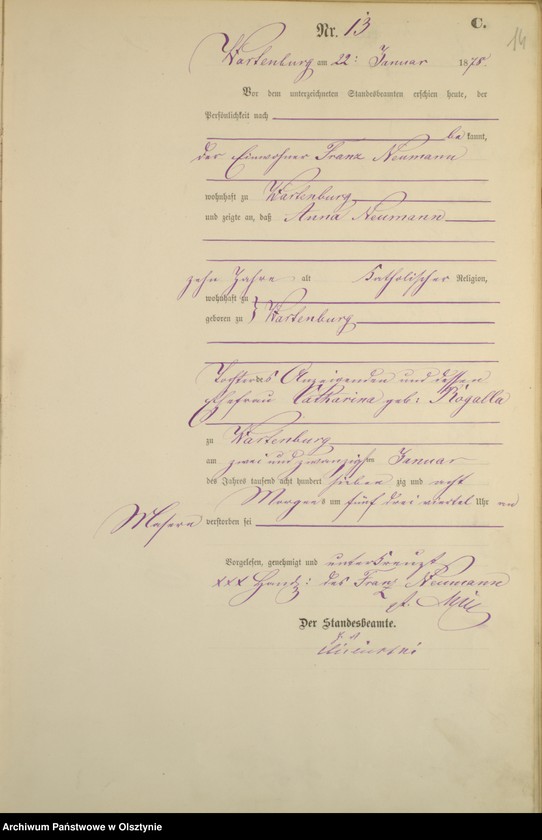 Nr. 13
C.
14
Wartenburg am 22: Januar 1878.
Vor dem unterzeichneten Standesbeamten erschien heute, der
Persönlichkeit nach
be kannt,
der Einwohner Franz Neumann
wohnhaft zu Wartenburg
und zeigte an, daß Anna Neumann
zehn Jahre alt Katholischer Religion,
wohnhaft zu
geboren zu } Wartenburg
Tochter des Anzeigenden und dessen
Ehefrau Catharina geb: Rogalla
zu Wartenburg
am zwei und zwanzigsten Januar
des Jahres tausend acht hundert sieben zig und acht
Morgens um fünf drei viertel Uhr an
Masern verstorben sei
Vorgelesen, genehmigt und unterkreuzt
xxx Handz: des Franz Neumann
Der Standesbeamte.
Archiwum Państwowe w Olsztynie